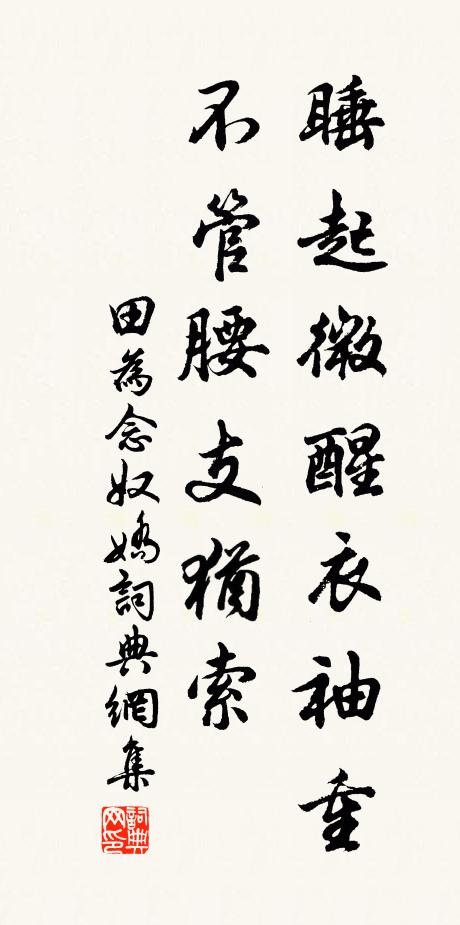 睡起微醒衣袖重
不管腰支猶索
田為念奴嬌詞典網集
詞典网印